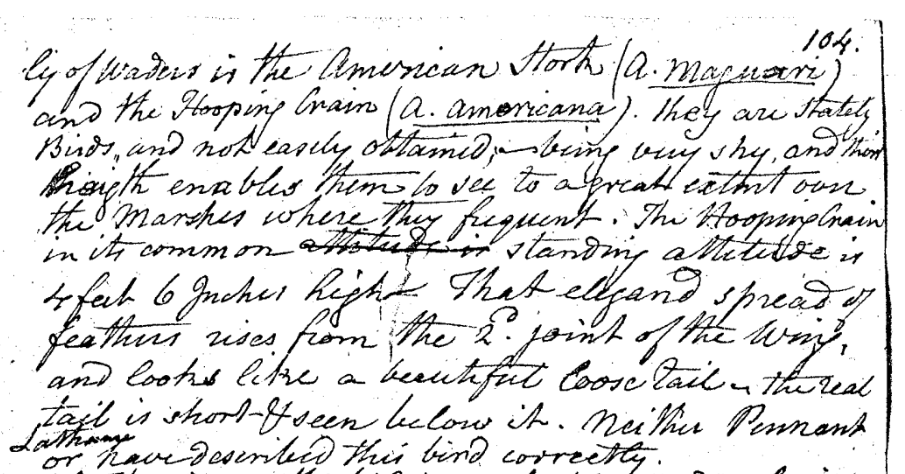 104.
ly of Waders is the American Stork (A. Maguari)
and the Hooping Crain (A. americana). They are Stately
Birds, and not easily obtained, - being very shy, and their
heigth enables them to see to a great extent over
the Marshes where they frequent. The Hooping Crain
in its common attitude is standing attitude is
4 feet 6 Inches high - That elegand spread of
feathers rises from the 2d. joint of the Wing,
and looks like a beautiful loose tail - the real
tail is short & seen below it. Neither Pennant
Lathame
or have described this bird correctly.